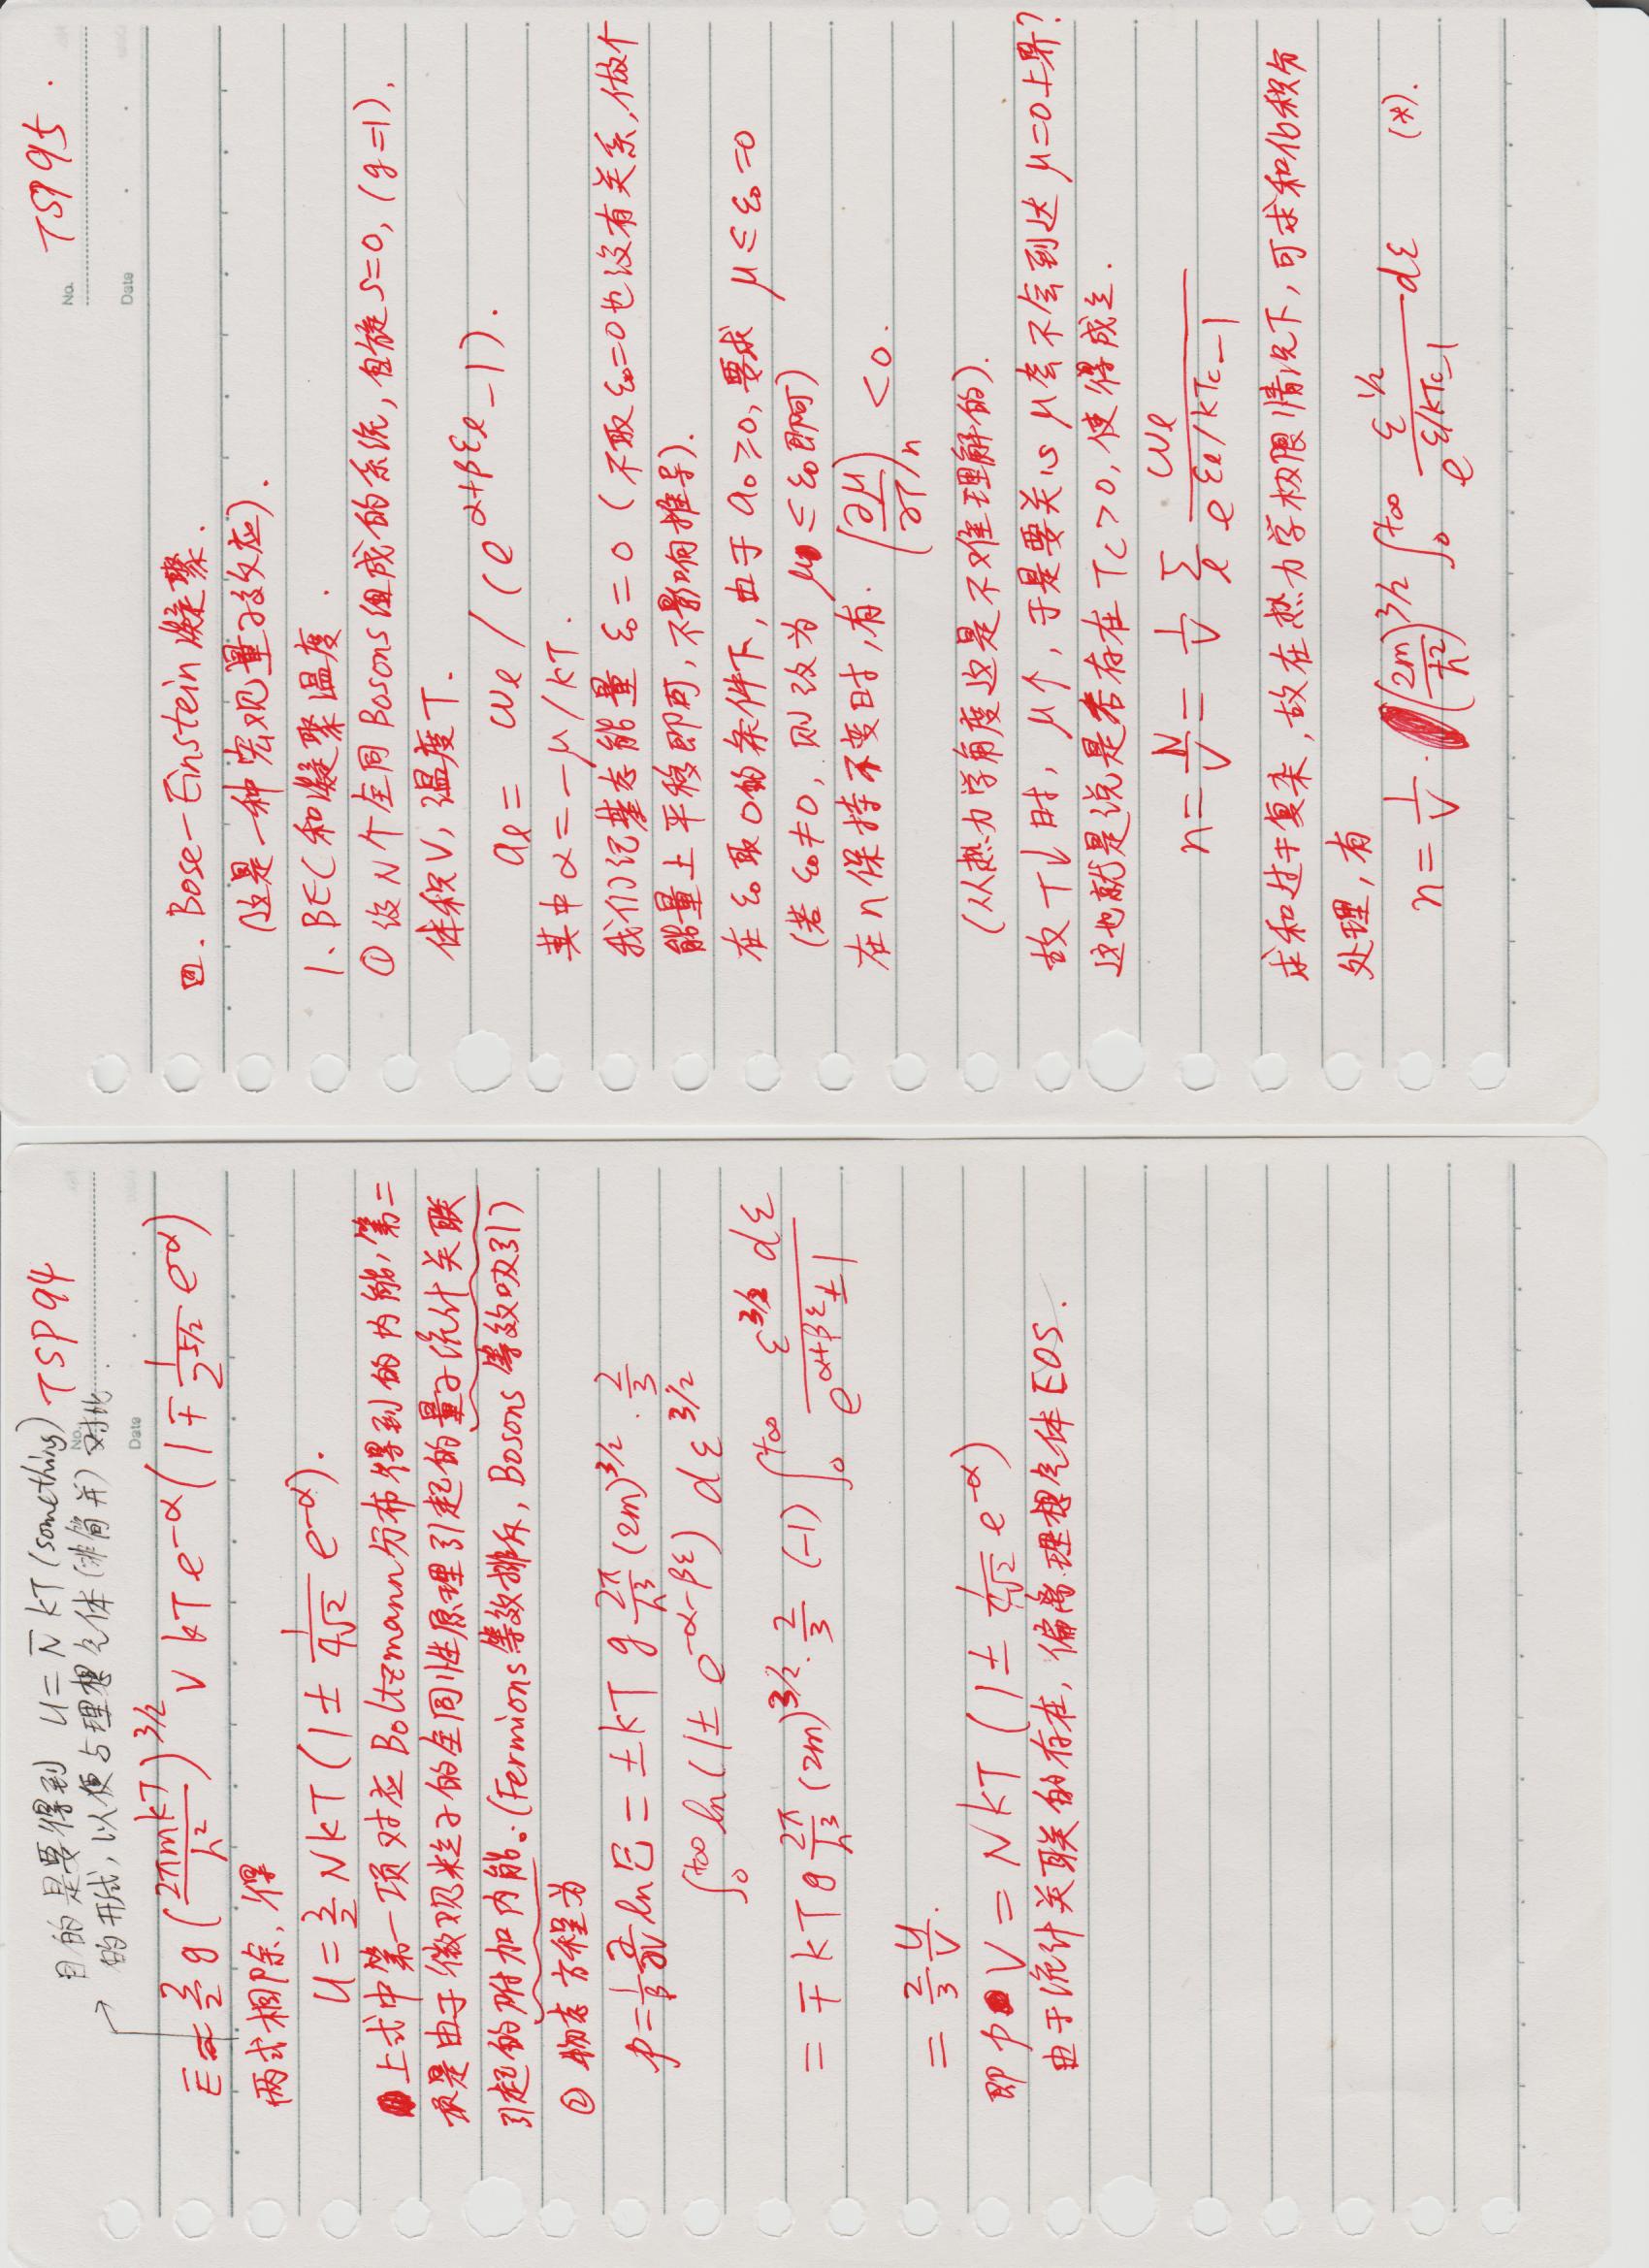 目的是要得到 U = N̄ kT (something)
的形式, 以便与理想气体(非简并) 对比.
TSP 94
No.
Date
E = 3/2 g (2πmkT/h²)^3/2 V kT e^-α (1 ∓ 1/2^5/2 e^-α)
两式相除, 得
U = 3/2 NkT (1 ± 1/4√2 e^-α).
上式中第一项对应 Boltzmann 分布得到的内能, 第二
项是由于微观粒子的全同性原理引起的量子统计关联
引起的附加内能。(Fermions 等效排斥, Bosons 等效吸引)
② 物态方程为
p = 1/β ∂/∂V ln Ξ = ±kT g 2π/h³ (2m)^3/2 · 2/3
∫₀^+∞ ln(1 ± e^-α-βε) dε^3/2
= ∓ kT g 2π/h³ (2m)^3/2 · 2/3 (-1) ∫₀^+∞ ε^3/2 dε / e^α+βε ± 1
= 2/3 U/V.
即 p V = NkT (1 ± 1/4√2 e^-α)
由于统计关联的存在, 偏离理想气体 EOS.
TSP 95.
No.
Date
四. Bose-Einstein 凝聚.
(这是一种宏观量子效应).
1. BEC 和凝聚温度.
① 设 N 个全同 Bosons 组成的系统, 自旋 s=0, (g=1),
体积 V, 温度 T.
a_ℓ = ω_ℓ / (e^α+βε_ℓ - 1).
其中 α = -μ/kT.
我们记基态能量 ε₀ = 0 (不取 ε₀=0 也没有关系, 做个
能量上平移即可, 不影响推导).
在 ε₀ 取 0 的条件下, 由于 a₀ ≥ 0, 要求 μ ≤ ε₀ = 0
(若 ε₀ ≠ 0, 则改为 μ ≤ ε₀ 即可)
在 n 保持不变时, 有. (∂μ/∂T)_n < 0.
(从热力学角度这是不难理解的).
故 T↓ 时, μ↑, 于是要关心 μ 会不会到达 μ=0 上界?
这也就是说是否存在 Tc > 0, 使得成立.
n = N/V = 1/V Σ_ℓ ω_ℓ / e^ε_ℓ/kTc - 1
求和过于复杂, 故在热力学极限情况下, 可求和化积分
处理, 有
n = 1/V · (2m/ħ²)^3/2 ∫₀^+∞ ε^1/2 / e^ε/kTc - 1 dε (*).